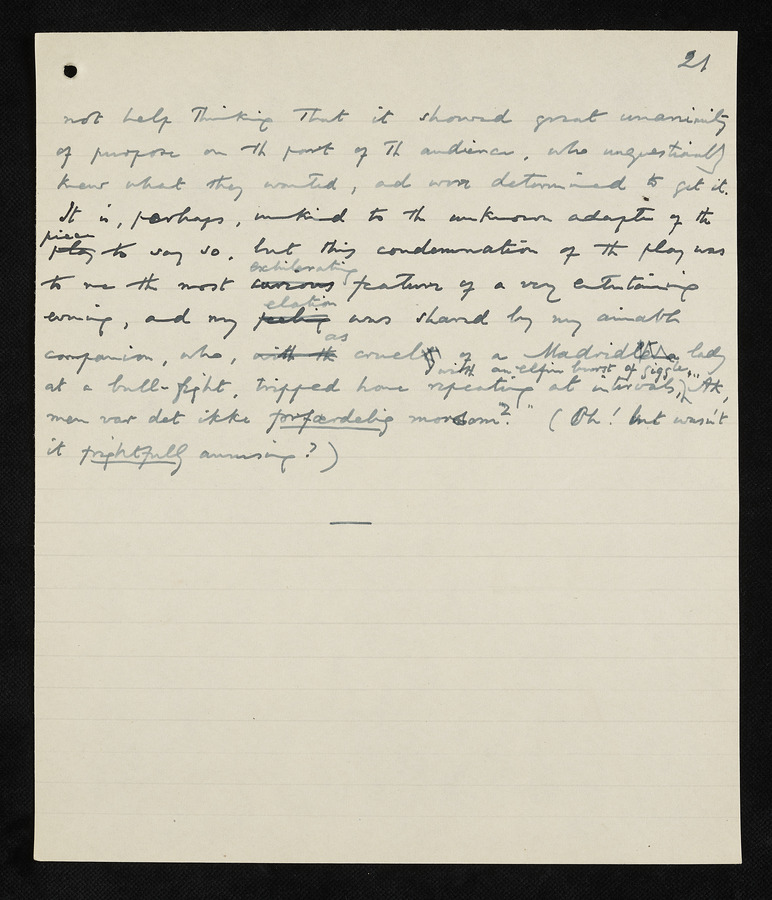 21
not help thinking that it showed great unanimity
of purpose on th part of th audience, who unquestionably
knew what they wanted, ad were determined to get it.
It is, perhaps, unkind to th unknown adapter of th
piece
play to say so, but this condemnation of th play was
exhilarating
to me th most curious feature of a very entertaining
elation
evening, and my feeling was shared by my amiable
as
companion, who, with th cruelly as a Madrid lady
with an elfin burst of giggles,
at a bull-fight, tripped home repeating at intervals, "Ak,
men var det ikke forfærdelig morsom?" (Oh! but wasn't
it frightfully amusing?)